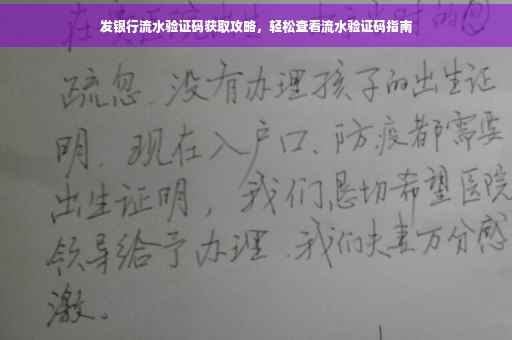 发银行流水验证码获取攻略，轻松查看流水验证码指南
疏忽、没有办理孩子的出生证
明、现在入户口、防疫都需要
出生证明，我们恳切希望医院
领导给予办理、我们夫妻万分感
激。